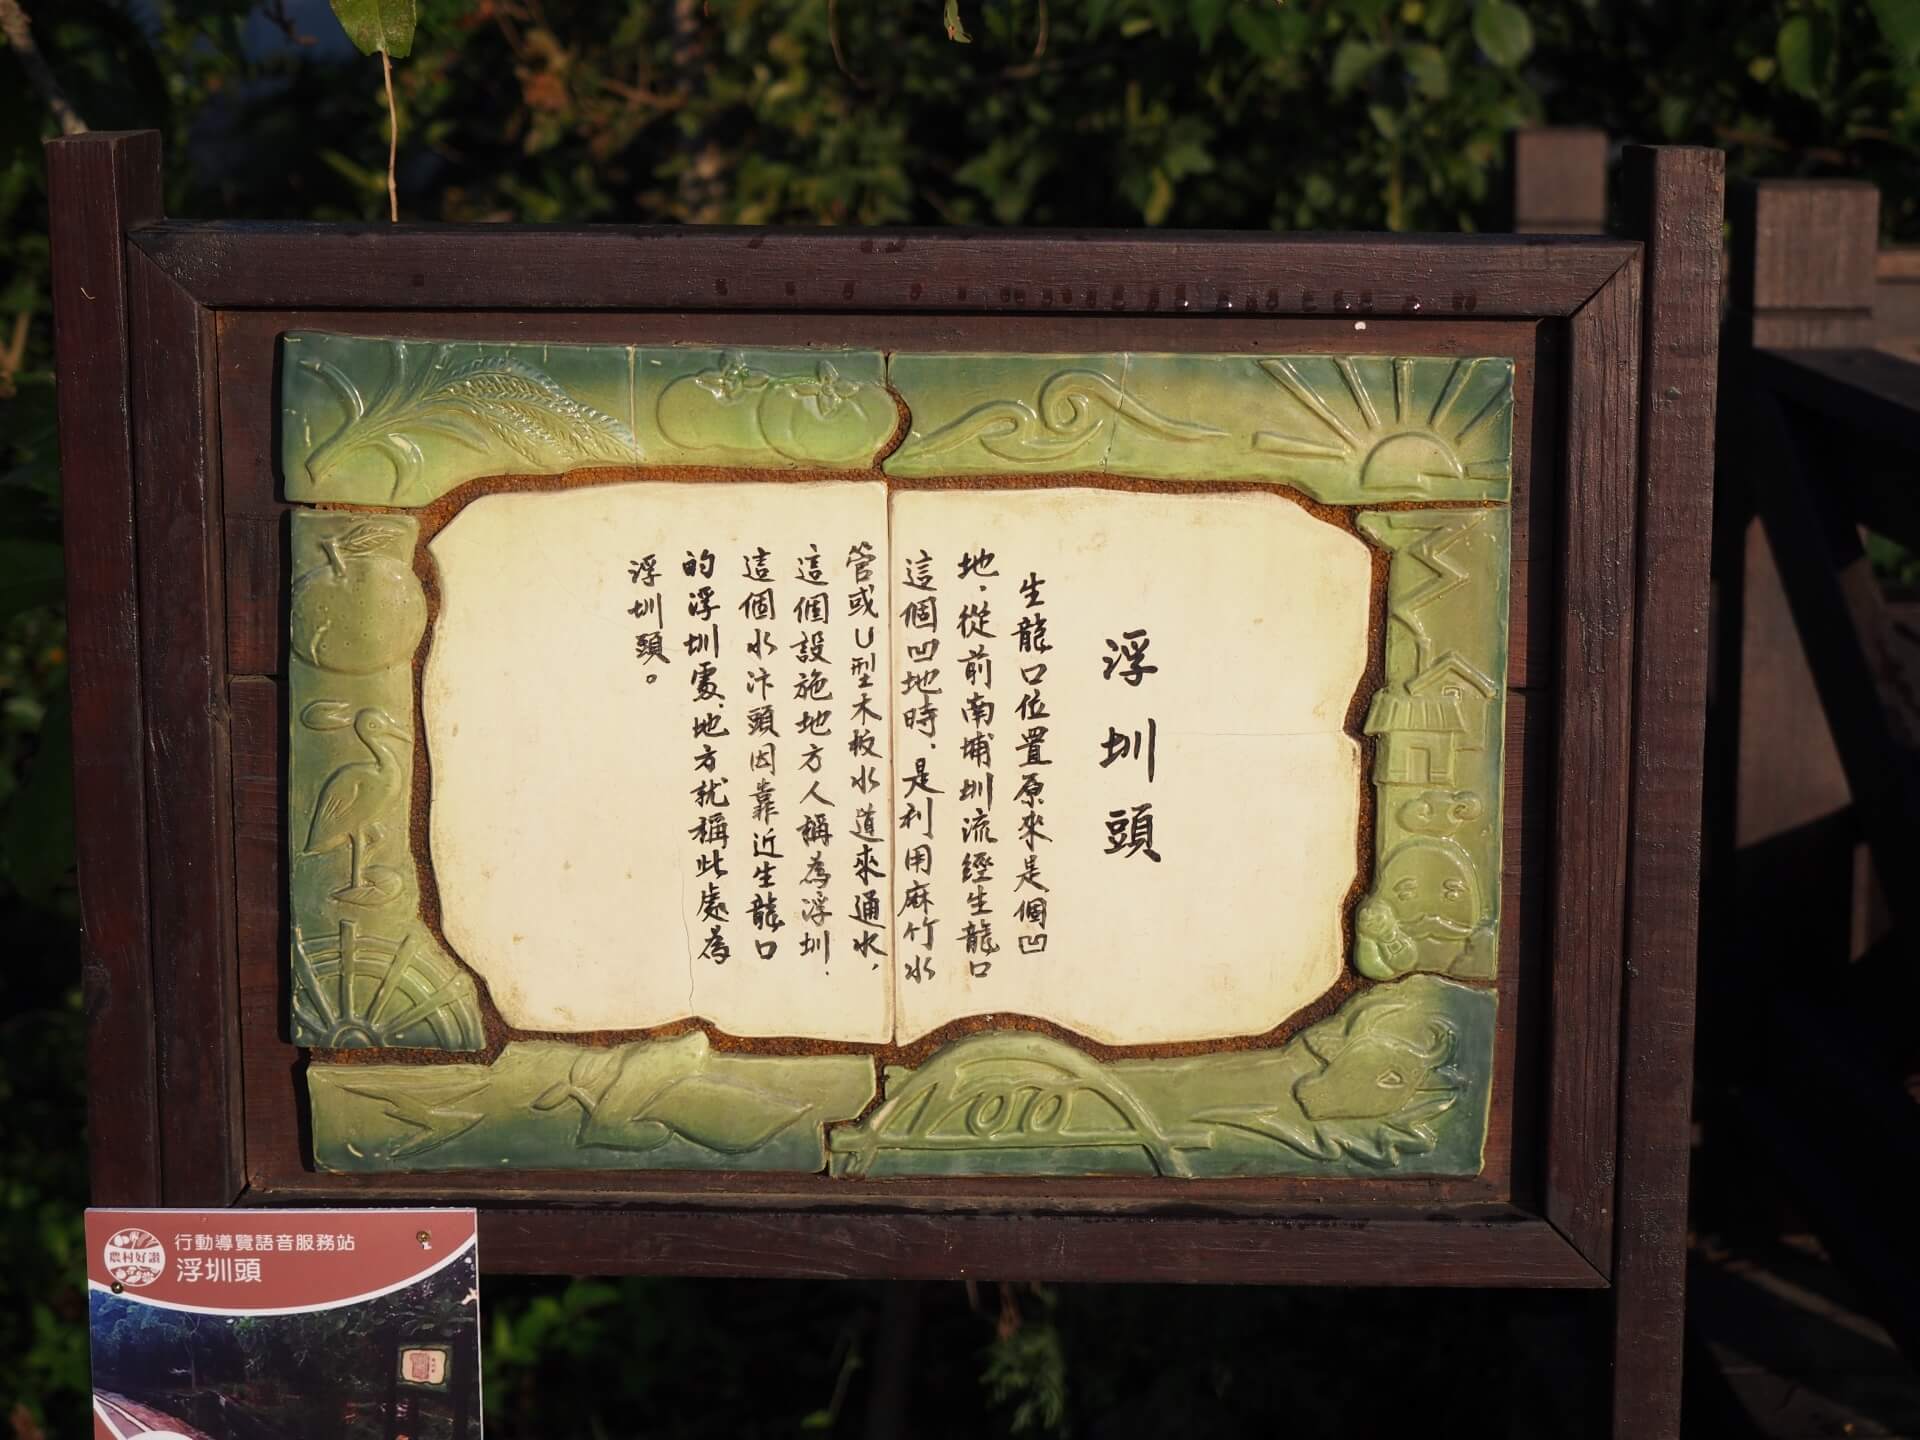 浮圳頭
生龍口位置原來是個凹
地，從前南埔圳流經生龍口
這個凹地時，是利用麻竹水
管或U型木板水道來通水，
這個設施地方人稱為浮圳．
這個水汴頭因靠近生龍口
的浮圳處、地方就稱此處為
浮圳頭。
農村好讚
行動導覽語音服務站
浮圳頭